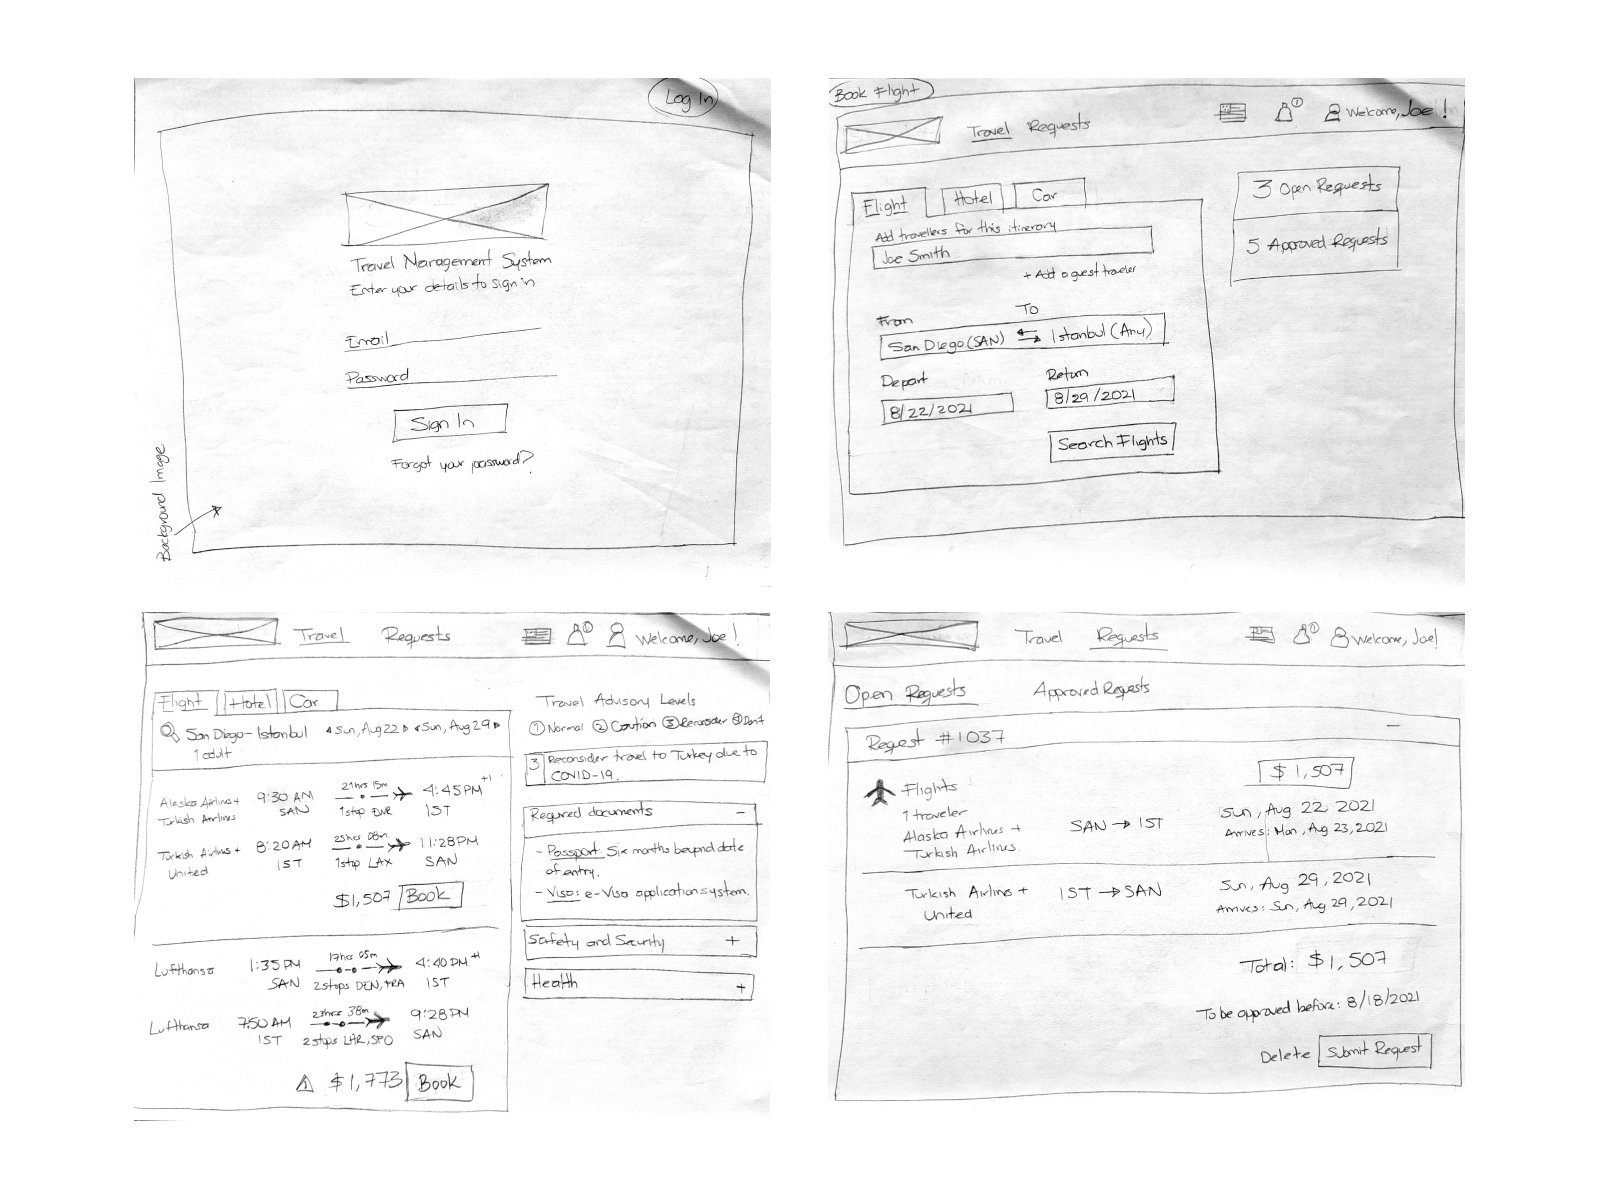 Log In
Travel Management System
Enter your details to sign in
Email
Password
Sign In
Forgot your password?
Background Image
Book Flight
Travel Requests
1
Welcome, Joe!
Flight Hotel Car
Add travellers for this itinerary
Joe Smith
+ Add a guest traveler
From To
San Diego (SAN) ⇆ Istanbul (Any)
Depart Return
8/22/2021 8/29/2021
Search Flights
3 Open Requests
5 Approved Requests
Travel Requests
1
Welcome, Joe!
Flight Hotel Car
San Diego - Istanbul Sun, Aug 22 Sun, Aug 29
1 adult
Alaska Airlines +
Turkish Airlines
9:30 AM
SAN
1 stop EWR
4:45 PM +1
IST
Turkish Airlines +
United
8:20 AM
IST
25hrs 08m
1 stop LAX
11:28 PM
SAN
$1,507 Book
Lufthansa
1:35 PM
SAN
17hrs 05m
2 stops DEN, FRA
4:40 PM +1
IST
Lufthansa
7:50 AM
IST
38m
2 stops LHR, SFO
9:28 PM
SAN
$1,773 Book
Travel Advisory Levels
1 Normal 2 Caution 3 Reconsider 4 Don't
3 Reconsider travel to Turkey due to
COVID-19.
Required documents −
- Passport: Six months beyond date
of entry.
- Visa: e-Visa application system.
Safety and Security +
Health +
Travel Requests
1
Welcome, Joe!
Open Requests Approved Requests
Request #1037 −
$1,507
Flights
1 traveler
Alaska Airlines +
Turkish Airlines
SAN → IST
Sun, Aug 22, 2021
Arrives: Mon, Aug 23, 2021
Turkish Airlines +
United
IST → SAN
Sun, Aug 29, 2021
Arrives: Sun, Aug 29, 2021
Total: $1,507
To be approved before: 8/18/2021
Delete Submit Request